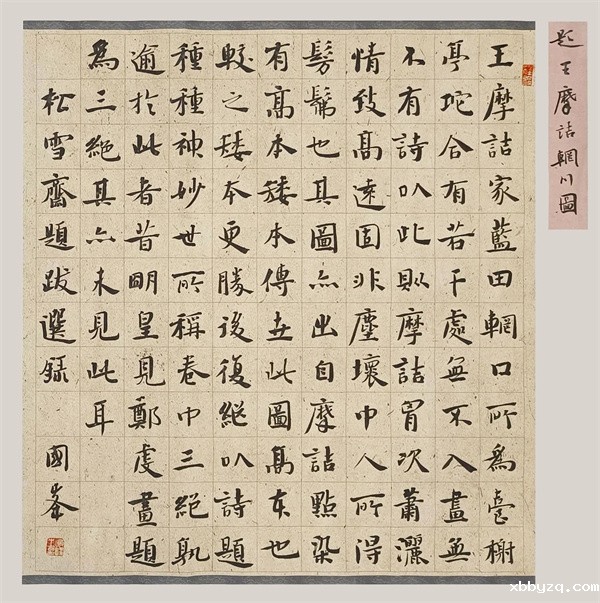 題王摩詰輞川圖
王摩詰家藍田輞口所為臺榭
亭坨合有若干處無不入畫無
不有詩以此則摩詰胷次蕭灑
情致高遠固非塵壤中人所得
髣髴也其圖亦出自摩詰點染
有高本矮本傳世此圖高本也
較之矮本更勝後復繼以詩題
種種神妙世所稱卷中三絕孰
逾於此者昔明皇見鄭虔畫題
為三絕其亦未見此耳
松雪齋題跋選錄 國峯
xbbyzq.com